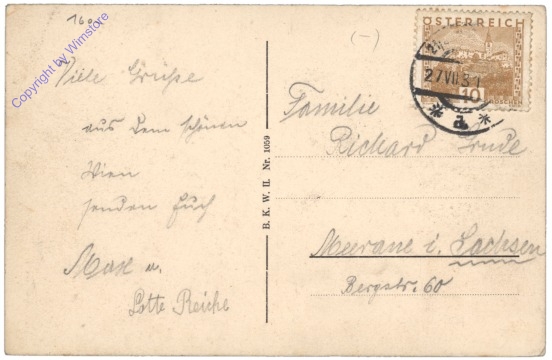 160,-
Viele Grüße
aus dem schönen
Wien
senden Euch
Max u.
Lotte Reiche
B. K. W. II. Nr. 1059
(-)
ÖSTERREICH
10
27 VII 31
* a *
Familie
Richard
Meerane i. Sachsen
Bergstr. 60
Copyright by Wimstore